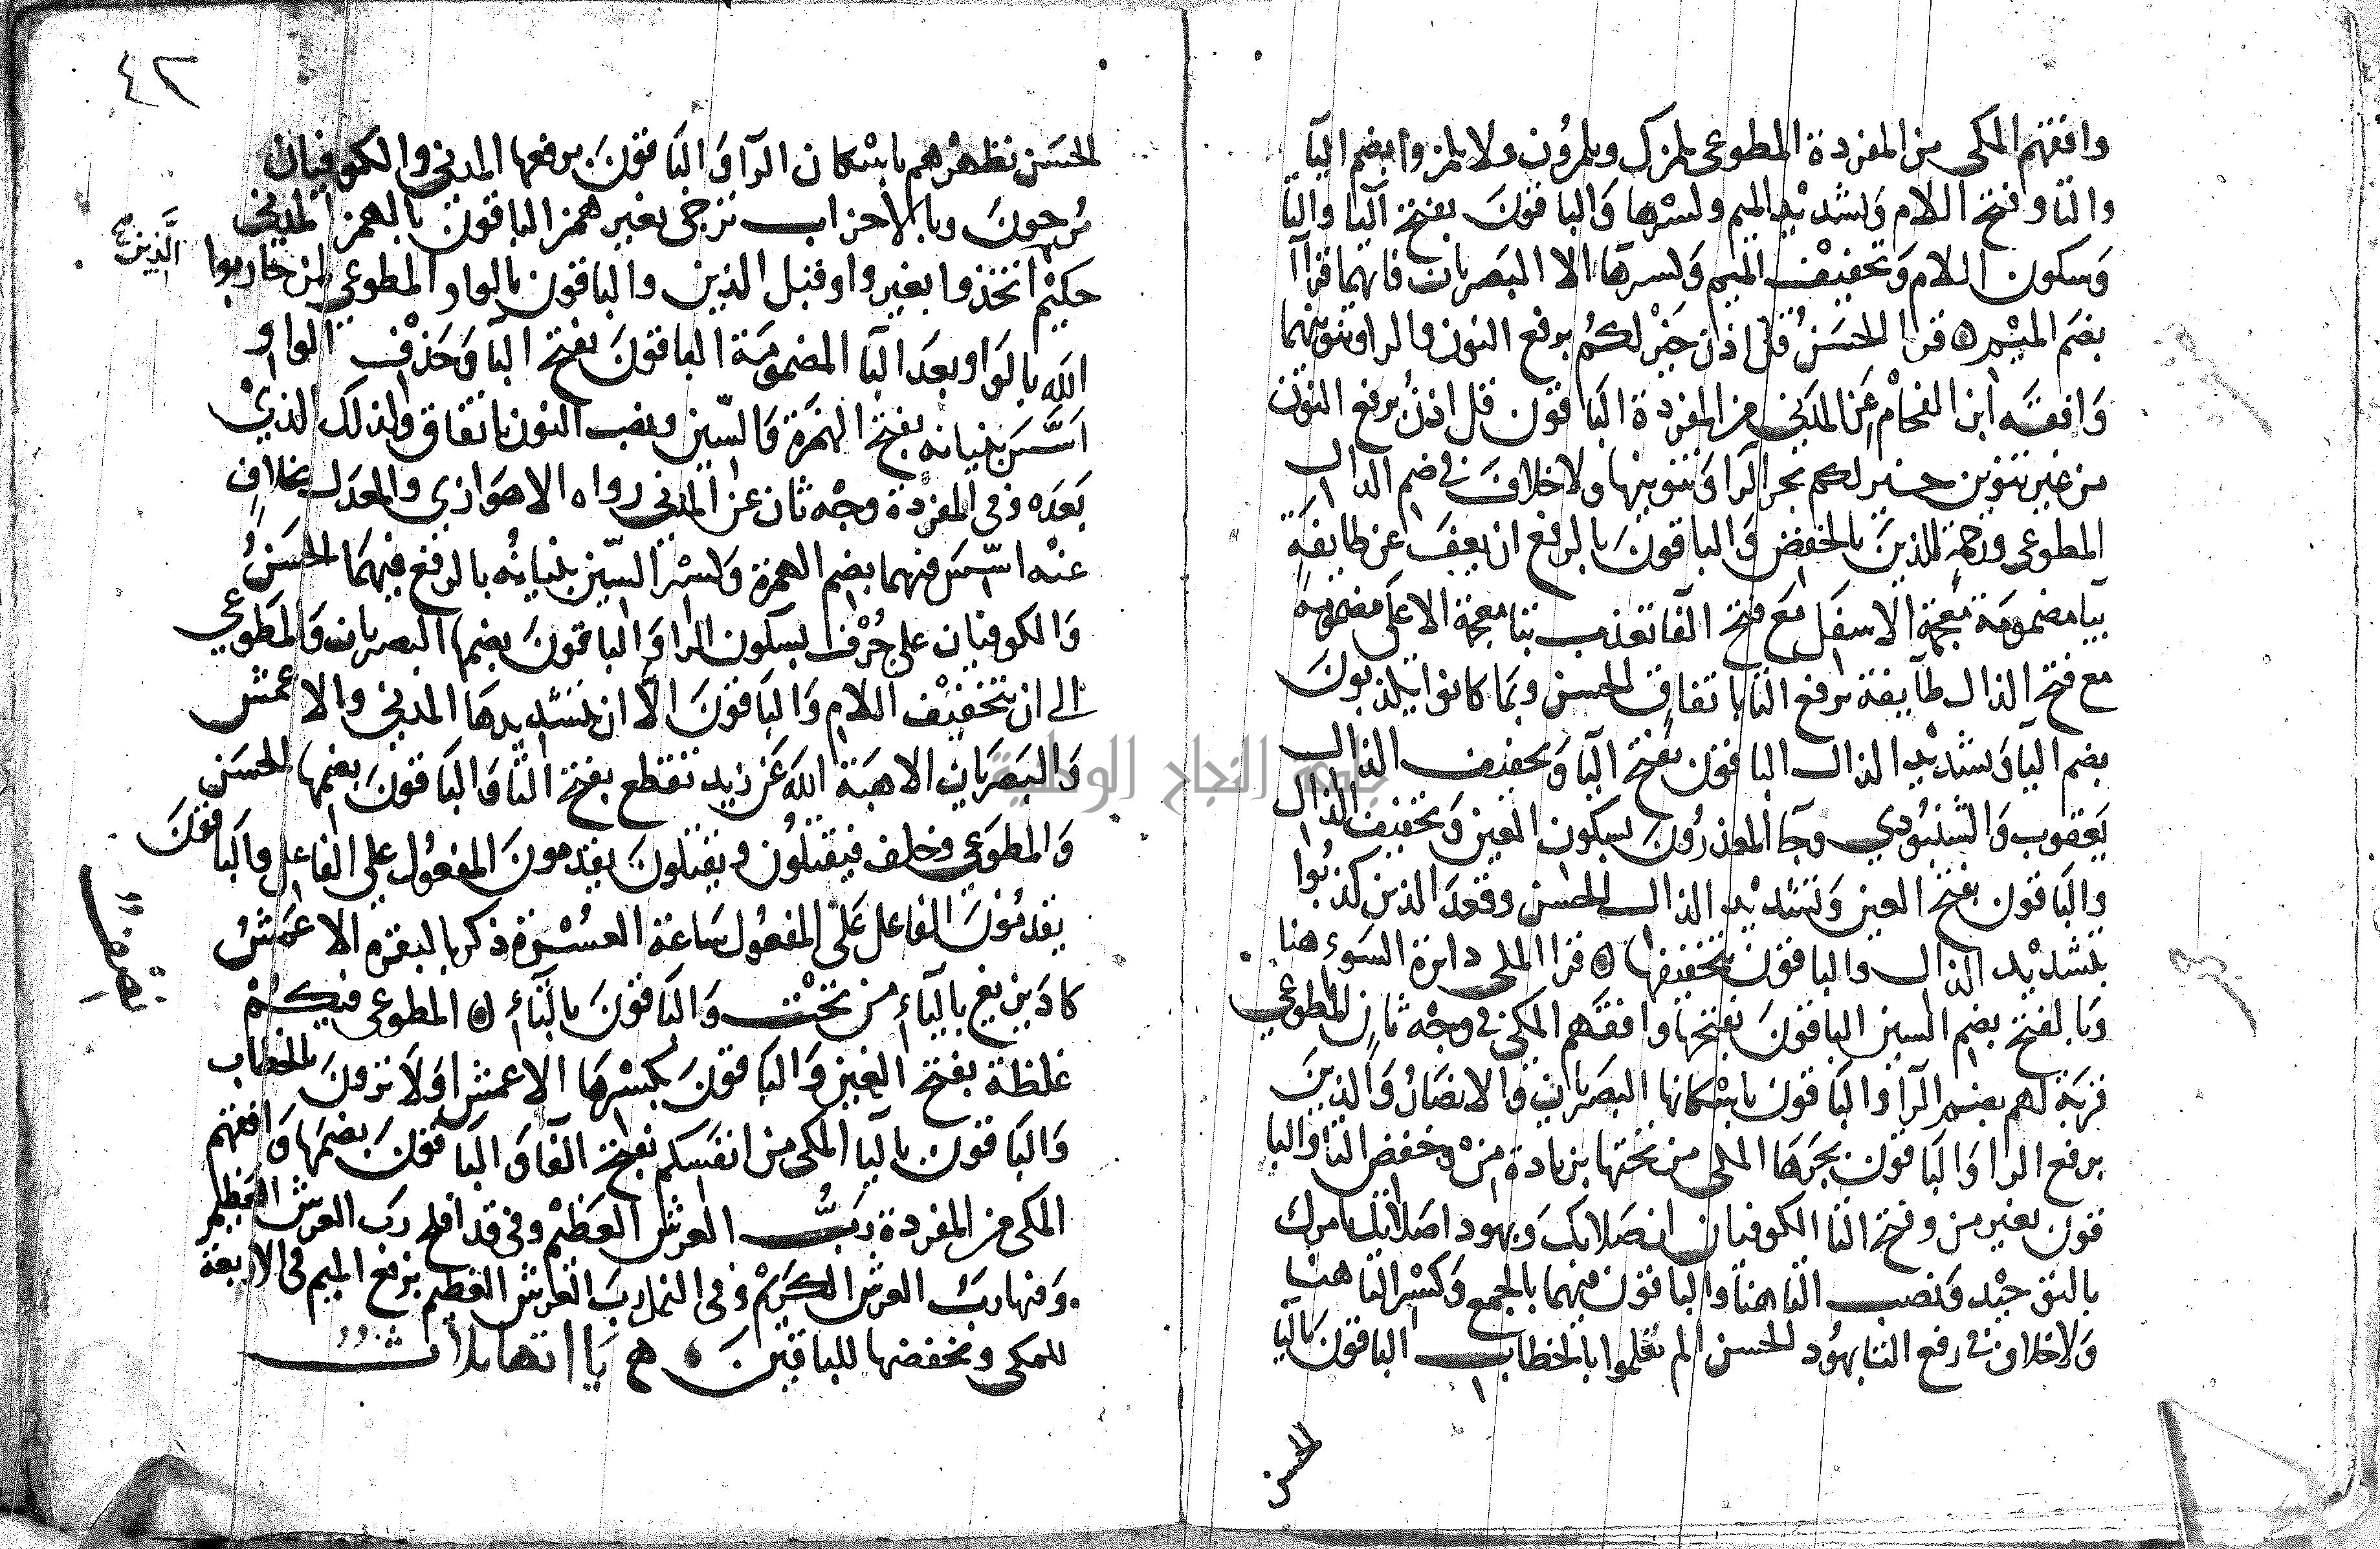 وافقهم المكي من المفردة المطوعي يلمزك ويلمزون ولا يلمزوا بضم اليا
والتا وفتح اللام وتشديد الميم وكسرها والباقون بفتح اليا والتا
وسكون اللام وتخفيف الميم وكسرها الا البصريان فانهما قرآ
بضم الميم ه قرا الحسن قل اذن خير لكم برفع النون والرا وتنوينهما
وافقه ابن الفحام عن المدني من المفردة الباقون قل اذن برفع النون
من غير تنوين خير لكم بجر الرا وتنوينها ولا خلاف في ضم الذال
المطوعي ورحمة للذين بالخفض والباقون بالرفع ان يعف عن طايفة
بيا مضمومة معجمة الاسفل مع فتح الفا تعذب بتا معجمة الاعلى مضمومة
مع فتح الذال طآيفة برفع التا باتفاق الحسن وبما كانوا يكذبون
بضم اليا وتشديد الذال الباقون بفتح اليا وتخفيف الذال
يعقوب والشنبوذي وجآ المعذرون بسكون العين وتخفيف الذال
والباقون بفتح العين وتشديد الذال الحسن وقعد الذين كذبوا
بتشديد الذال والباقون بتخفيفها ه قرا المكي دائرة السوء هنا
وبالفتح بضم السين الباقون بفتحها وافقهم المكي في وجه ثان المطوعي
قربة لهم بضم الرا والباقون باسكانها البصريان والانصار والذين
برفع الرا والباقون بجرها المكي من تحتها بزيادة من وخفض التا والبا
قون بغير من وفتح التا الكوفيان ان صلاتك وبهود اصلاتك تامرك
بالتوحيد ونصب التا هنا والباقون فيهما بالجمع وكسر التا هنا
ولا خلاف في رفع التا بهود الحسن الم تعلموا بالخطاب الباقون باليا
الحسن
٤٢
الحسن تطهرهم باسكان الرا والباقون برفعها المدني والكوفيان
مرجون وبالاحزاب ترجى بغير همز الباقون بالهمز المدني
حكيم اتخذوا بغير واو قبل الذين والباقون بالواو المطوعي لمن حاربوا
الذين
الله بالواو بعد البا المضمومة الباقون بفتح البا وحذف الواو
اسس بنيانه بفتح الهمزة والسين ونصب النون باتفاق وكذلك الذي
بعده وفي المفردة وجه ثان عن المدني رواه الاهوازي والمعدل بخلاف
عنه اسس فيهما بضم الهمزة وكسر السين بنيانه بالرفع فيهما الحسن
والكوفيان على جرف بسكون الرا والباقون بضمها البصريان والمطوعي
الى ان بتخفيف اللام والباقون الا ان بتشديدها المدني والاعمش
والبصريان الا هبة الله عن زيد تقطع بفتح التا والباقون بضمها الحسن
والمطوعي وخلف فيقتلون ويقتلون يقدمون المفعول على الفاعل والباقون
يقدمون الفاعل على المفعول ساعة العسرة ذكر بالبقرة الاعمش
كاد يزيغ باليآء من تحت والباقون بالتآء ه المطوعي فيكم
غلظة بفتح الغين والباقون بكسرها الاعمش اولا ترون بالخطاب
والباقون باليا المكي من انفسكم بفتح الفا والباقون بضمها وافقهم
المكي من المفردة رب العرش العظيم وفي قد افلح رب العرش العظيم
وفيها رب العرش الكريم وفي النمل رب العرش العظيم برفع الميم في الاربعة
للمكي وبخفضها للباقين ه